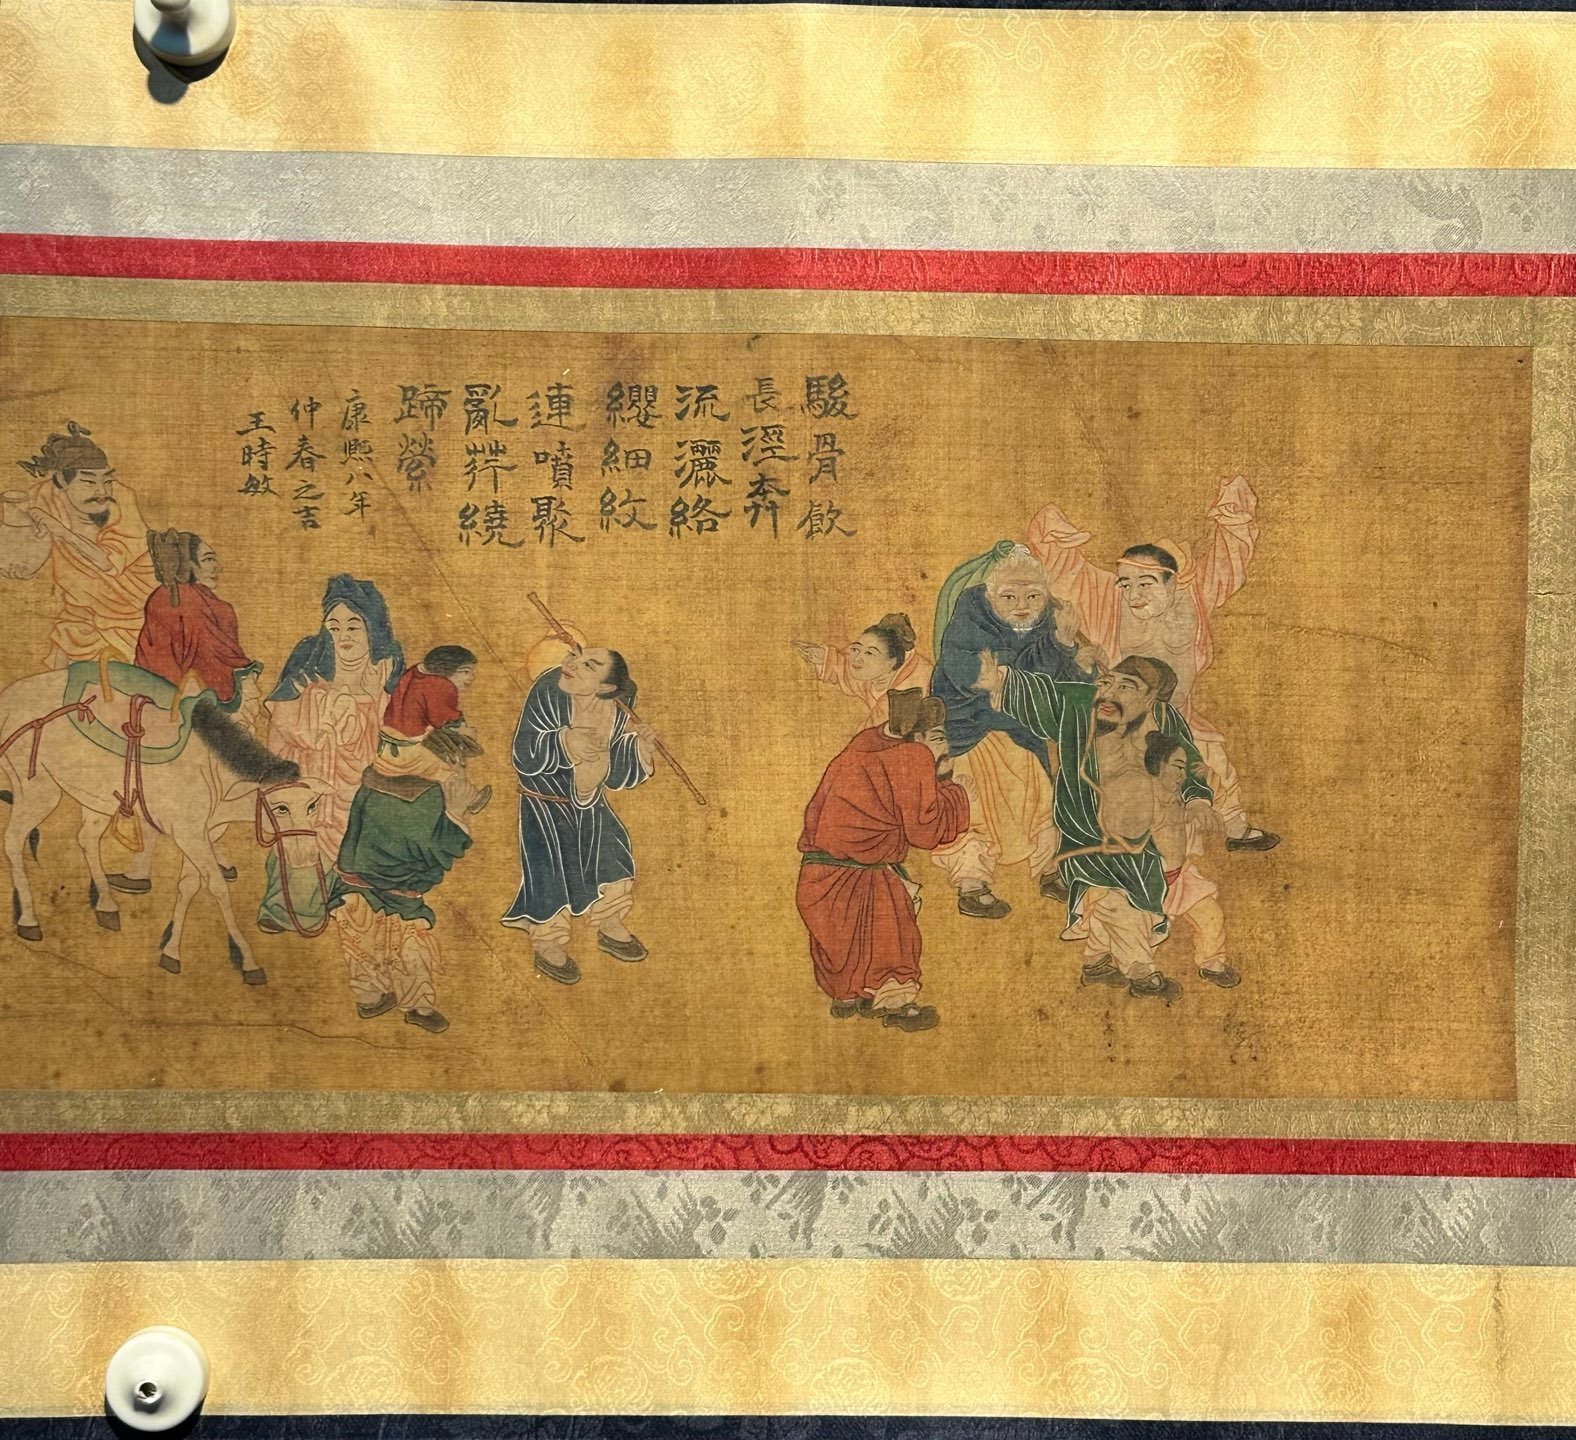 駿骨飲
長涇奔
流灑絡
纓細紋
連噴聚
亂荇繞
蹄縈
康熙八年
仲春之吉
王時敏